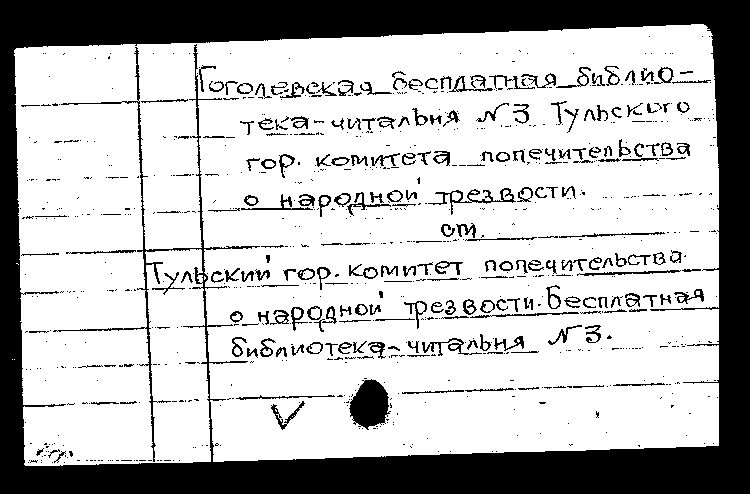 Гоголевская бесплатная библио-
тека-читальня №3 Тульского
гор. комитета попечительства
о народной трезвости.
см.
Тульский гор. комитет попечительства
о народной трезвости. Бесплатная
библиотека-читальня №3.